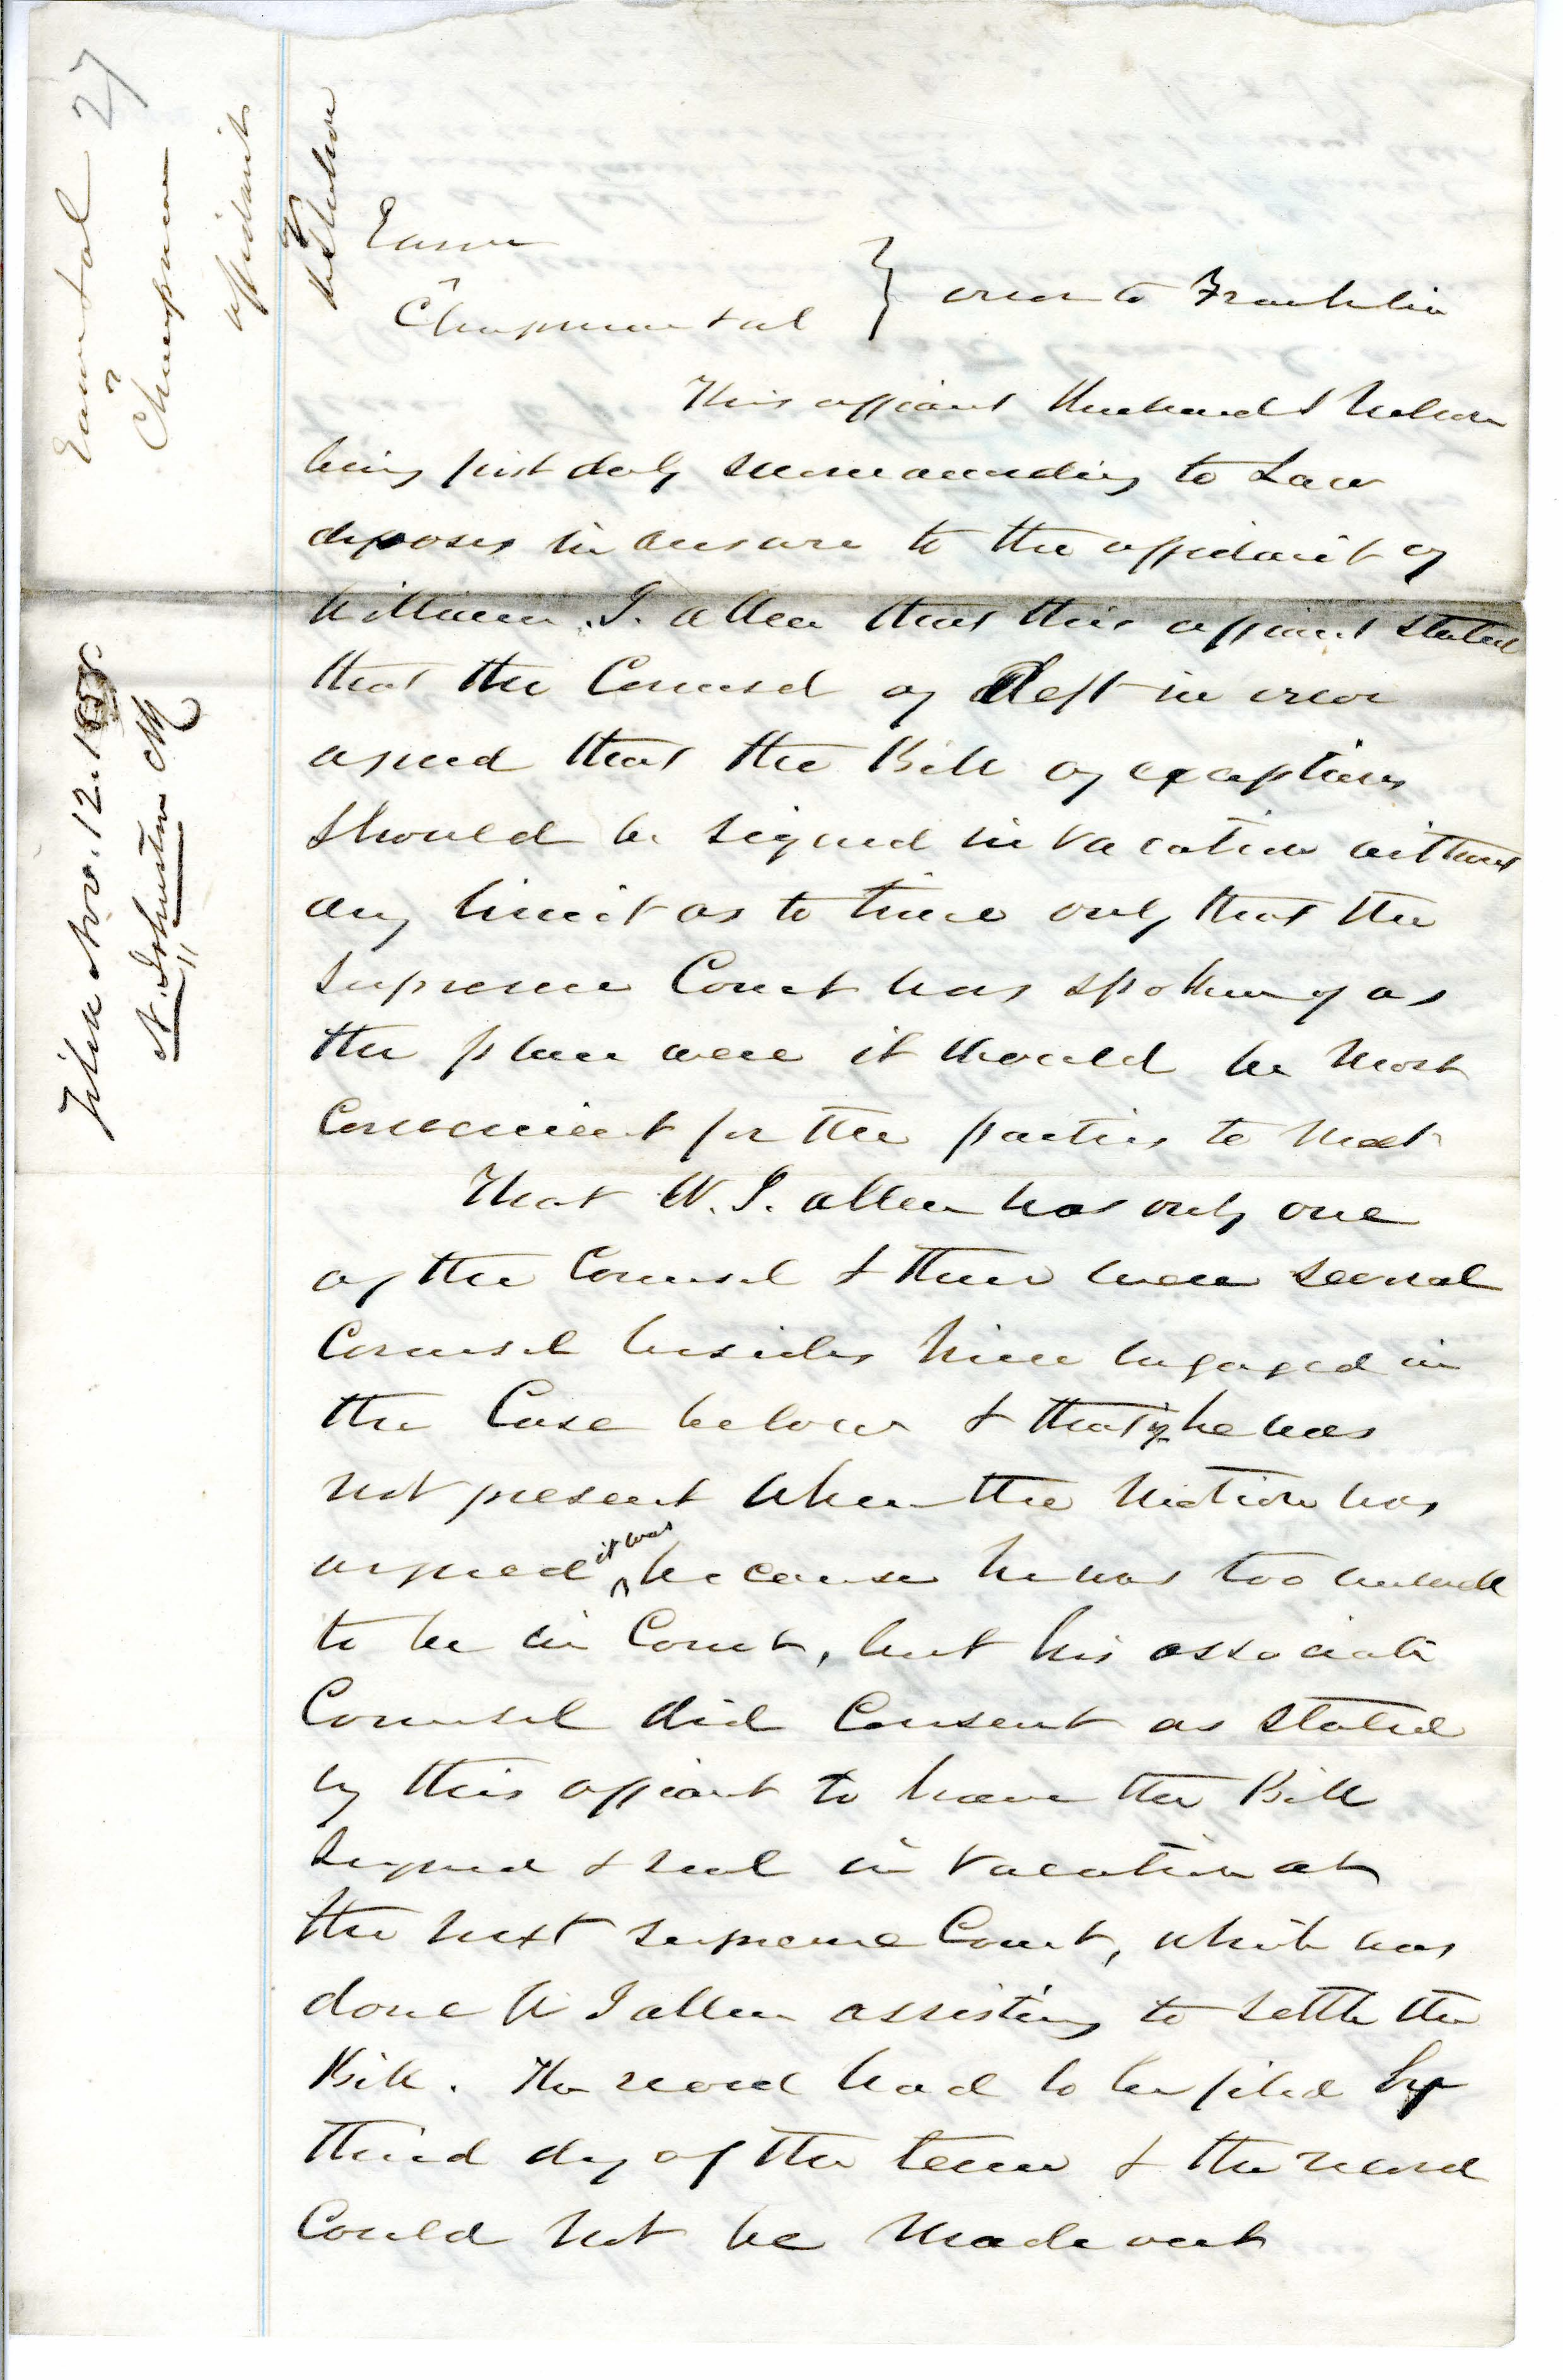 27
Eam et al
v
Chapman
affidavit
Filed Nov. 12. 1858
N. Johnston Clk
Eam
v
Chapman et al } error to Franklin
This affiant Nelson
being first duly sworn according to Law
deposes in answer to the affidavit of
William. J. Allen that this affiant stated
that the Counsel of Deft in error
agreed that the Bill of exceptions
should be signed in vacation without
any limit as to time only that the
Supreme Court was spoken of as
the place were it would be most
Convenient for the parties to meet
That W. J. Allen was only one
of the Counsel & there were several
Counsel besides him engaged in
the Case below & that if he was
not present when the motion was
argued it was because he was too unwell
to be in Court, but his associate
Counsel did Consent as stated
by this affiant to have the Bill
signed & seal in vacation at
the next supreme Court, which was
done W J Allen assisting to settle the
Bill. The record had to be filed by
third day of the term & the record
Could not be made out